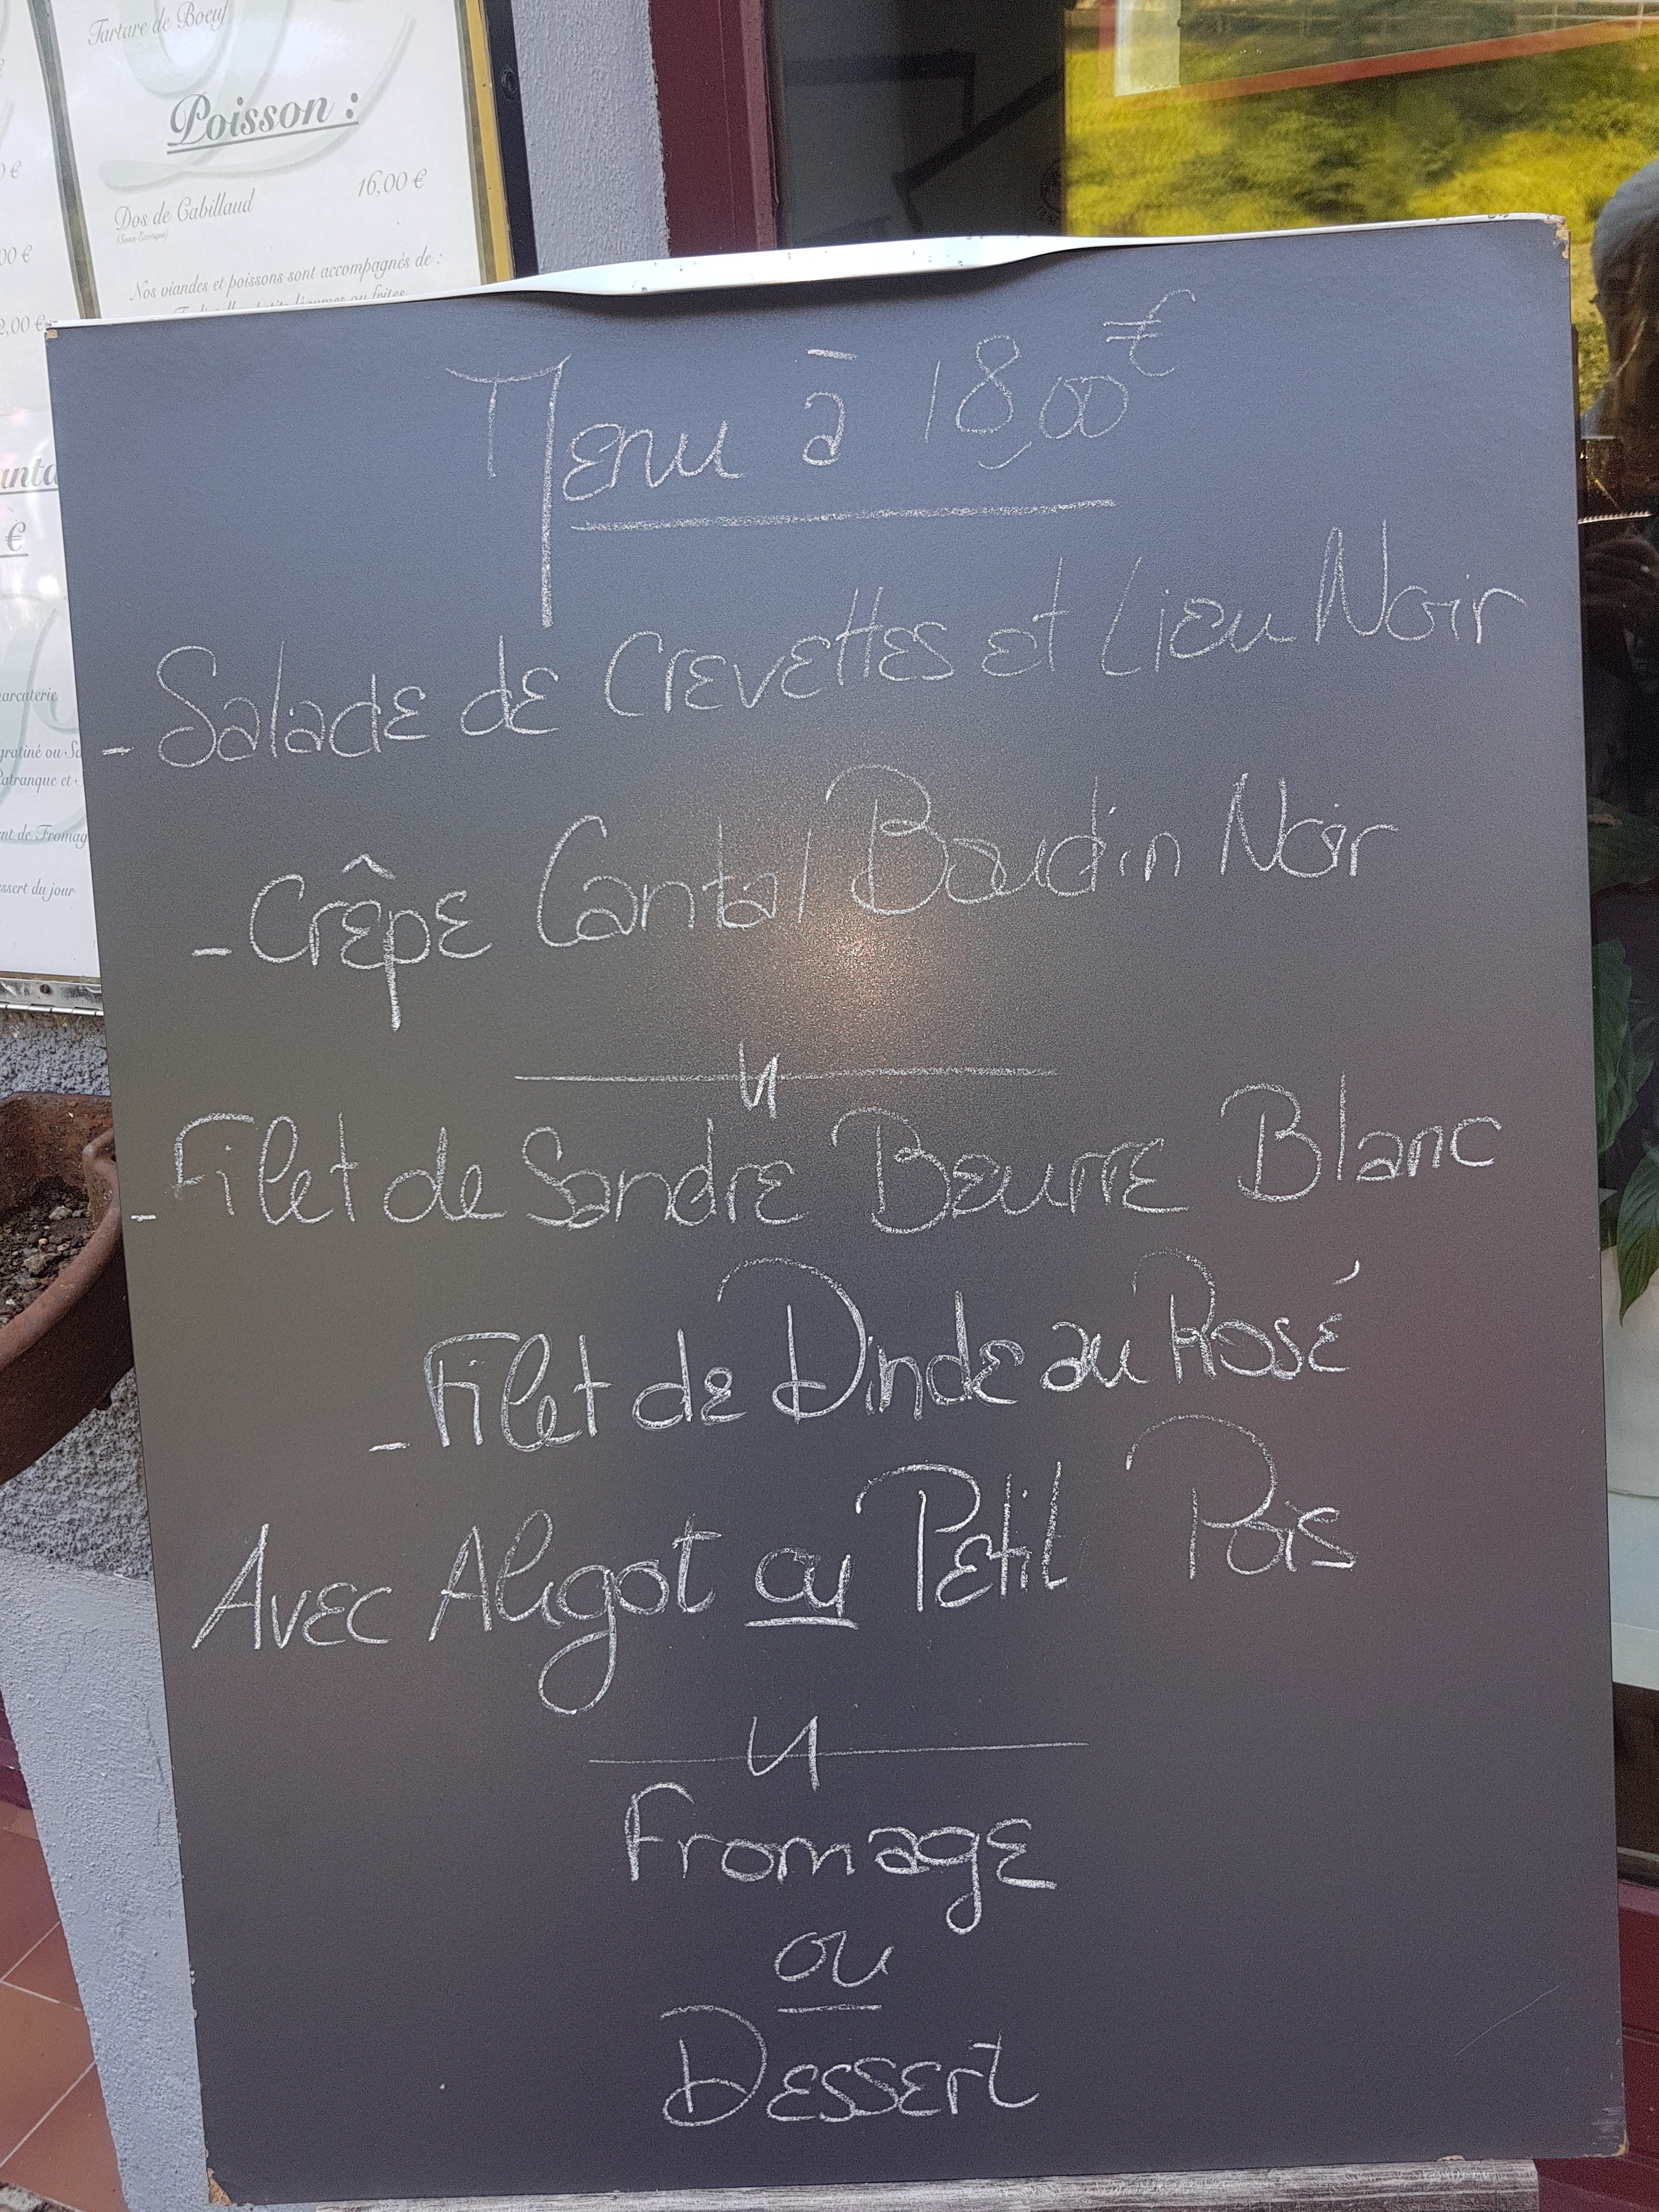 Tartare de Boeuf
Poisson :
Dos de Cabillaud 16,00 €
Nos viandes et poissons sont accompagnés de :
0 €
00 €
2,00 €
€
arcuterie
gratiné ou
Patranque et
nt de Fromag
ssert du jour
Menu à 18,00€
- Salade de Crevettes et Lieu Noir
- Crêpe Cantal Boudin Noir
- Filet de Sandre Beurre Blanc
- Filet de Dinde au Rosé
Avec Aligot ou Petit Pois
Fromage
ou
Dessert